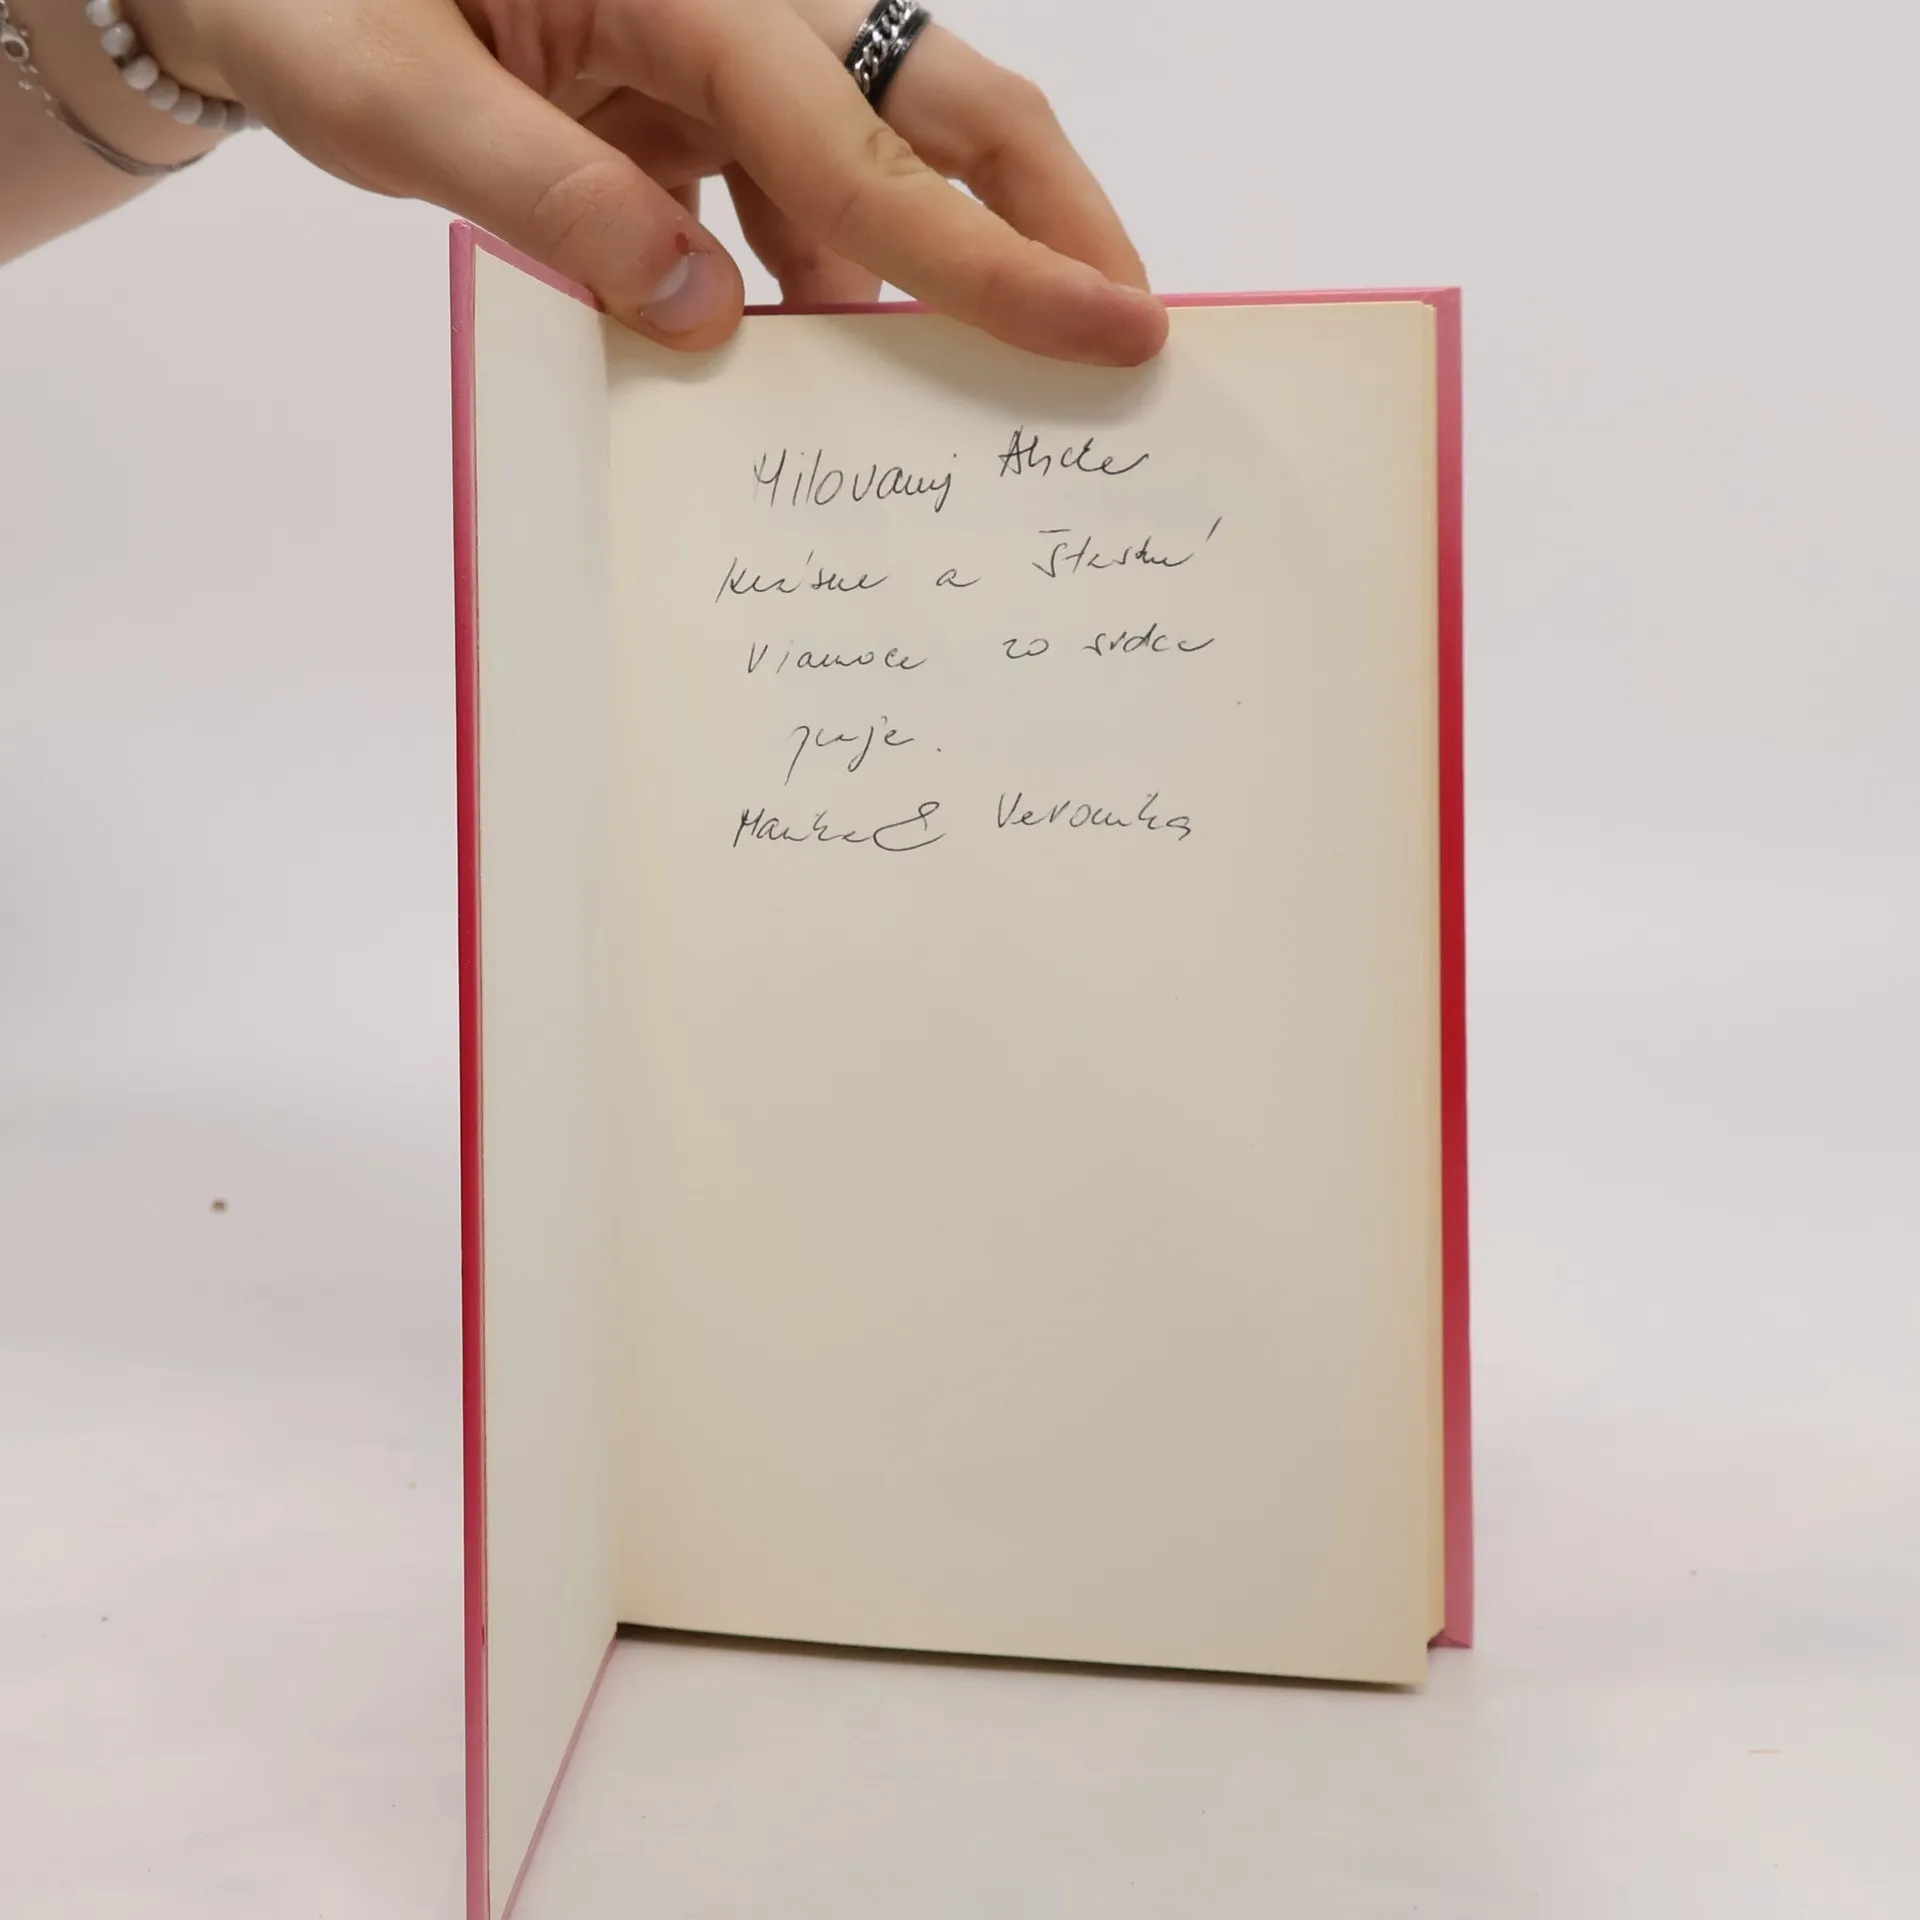 Milovanej
Krásne a šťastné
Vianoce zo srdca
praje.
Mamka & Veronika